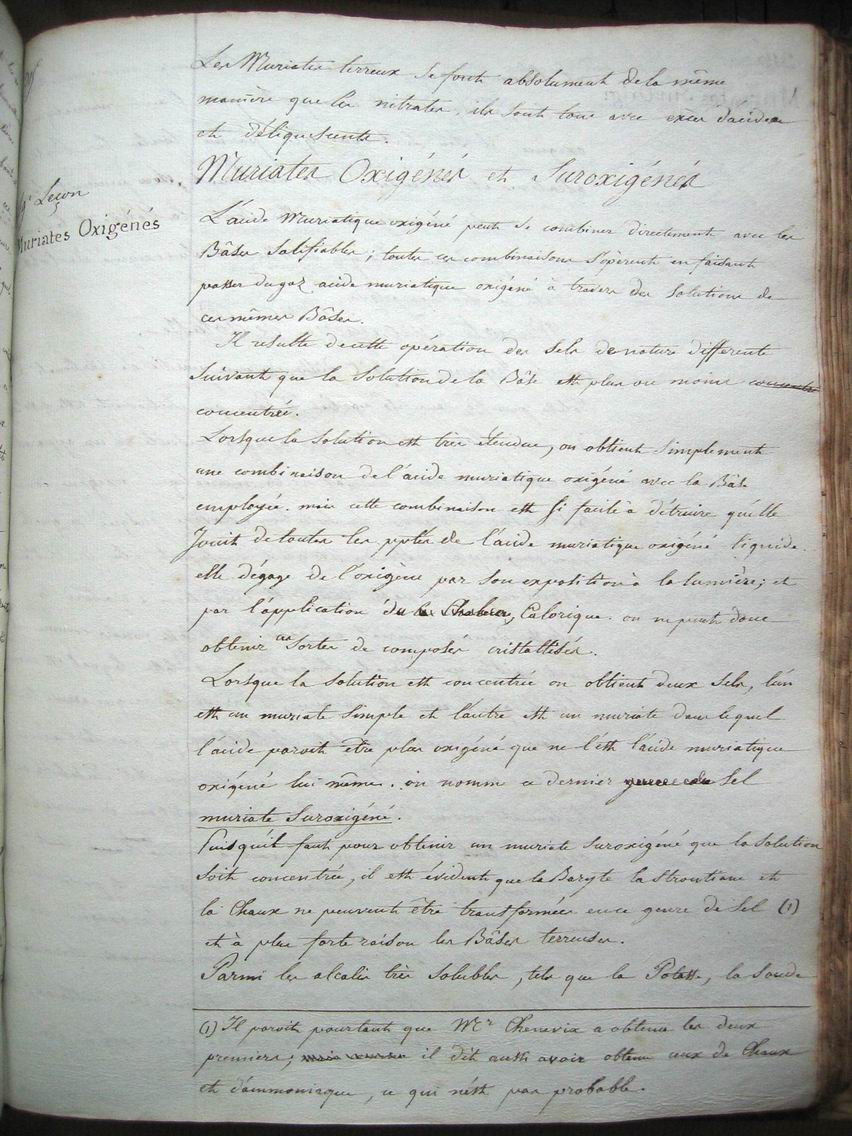 Les Muriates terreux se font absolument de la même
manière que les nitrates, ils sont tous avec excès d'acide
et déliquescents.
Muriates Oxigénés et Suroxigénés
Leçon
Muriates Oxigénés
L'acide muriatique oxigéné peut se combiner directement avec les
Bâses salifiables; toutes ces combinaisons s'opèrent en faisant
passer du gaz acide muriatique oxigéné à travers des solutions de
ces mêmes Bâses.
Il resulte de cette opération des sels de nature differente
suivant que la solution de la Bâse est plus ou moins concentrée
concentrée.
Lorsque la solution est très étendue, on obtient simplement
une combinaison de l'acide muriatique oxigéné avec la Bâse
employée. mais cette combinaison est si facile à détruire qu'elle
Jouit de toutes les pptés de l'acide muriatique oxigéné liquide.
elle dégage de l'oxigène par son exposition à la lumière; et
par l'application du Calorique. on ne peut donc
obtenir ces sortes de composés cristallisés.
Lorsque la solution est concentrée on obtient deux sels, l'un
est un muriate simple et l'autre est un muriate dans lequel
l'acide paroit être plus oxigéné que ne l'est l'acide muriatique
oxigéné lui même. on nomme ce dernier sel
muriate suroxigéné.
Puisqu'il faut pour obtenir un muriate suroxigéné que la solution
soit concentrée, il est évident que la Baryte la Strontiane et
la Chaux ne peuvent être transformées en ce genre de sel (1)
et à plus forte raison les Bâses terreuses.
Parmi les alcalis très solubles, tels que la Potasse, la soude
(1) Il paroit pourtant que Mr Chenevix a obtenu les deux
premiers; il dit aussi avoir obtenu ceux de Chaux
et d'ammoniaque, ce qui n'est pas probable.